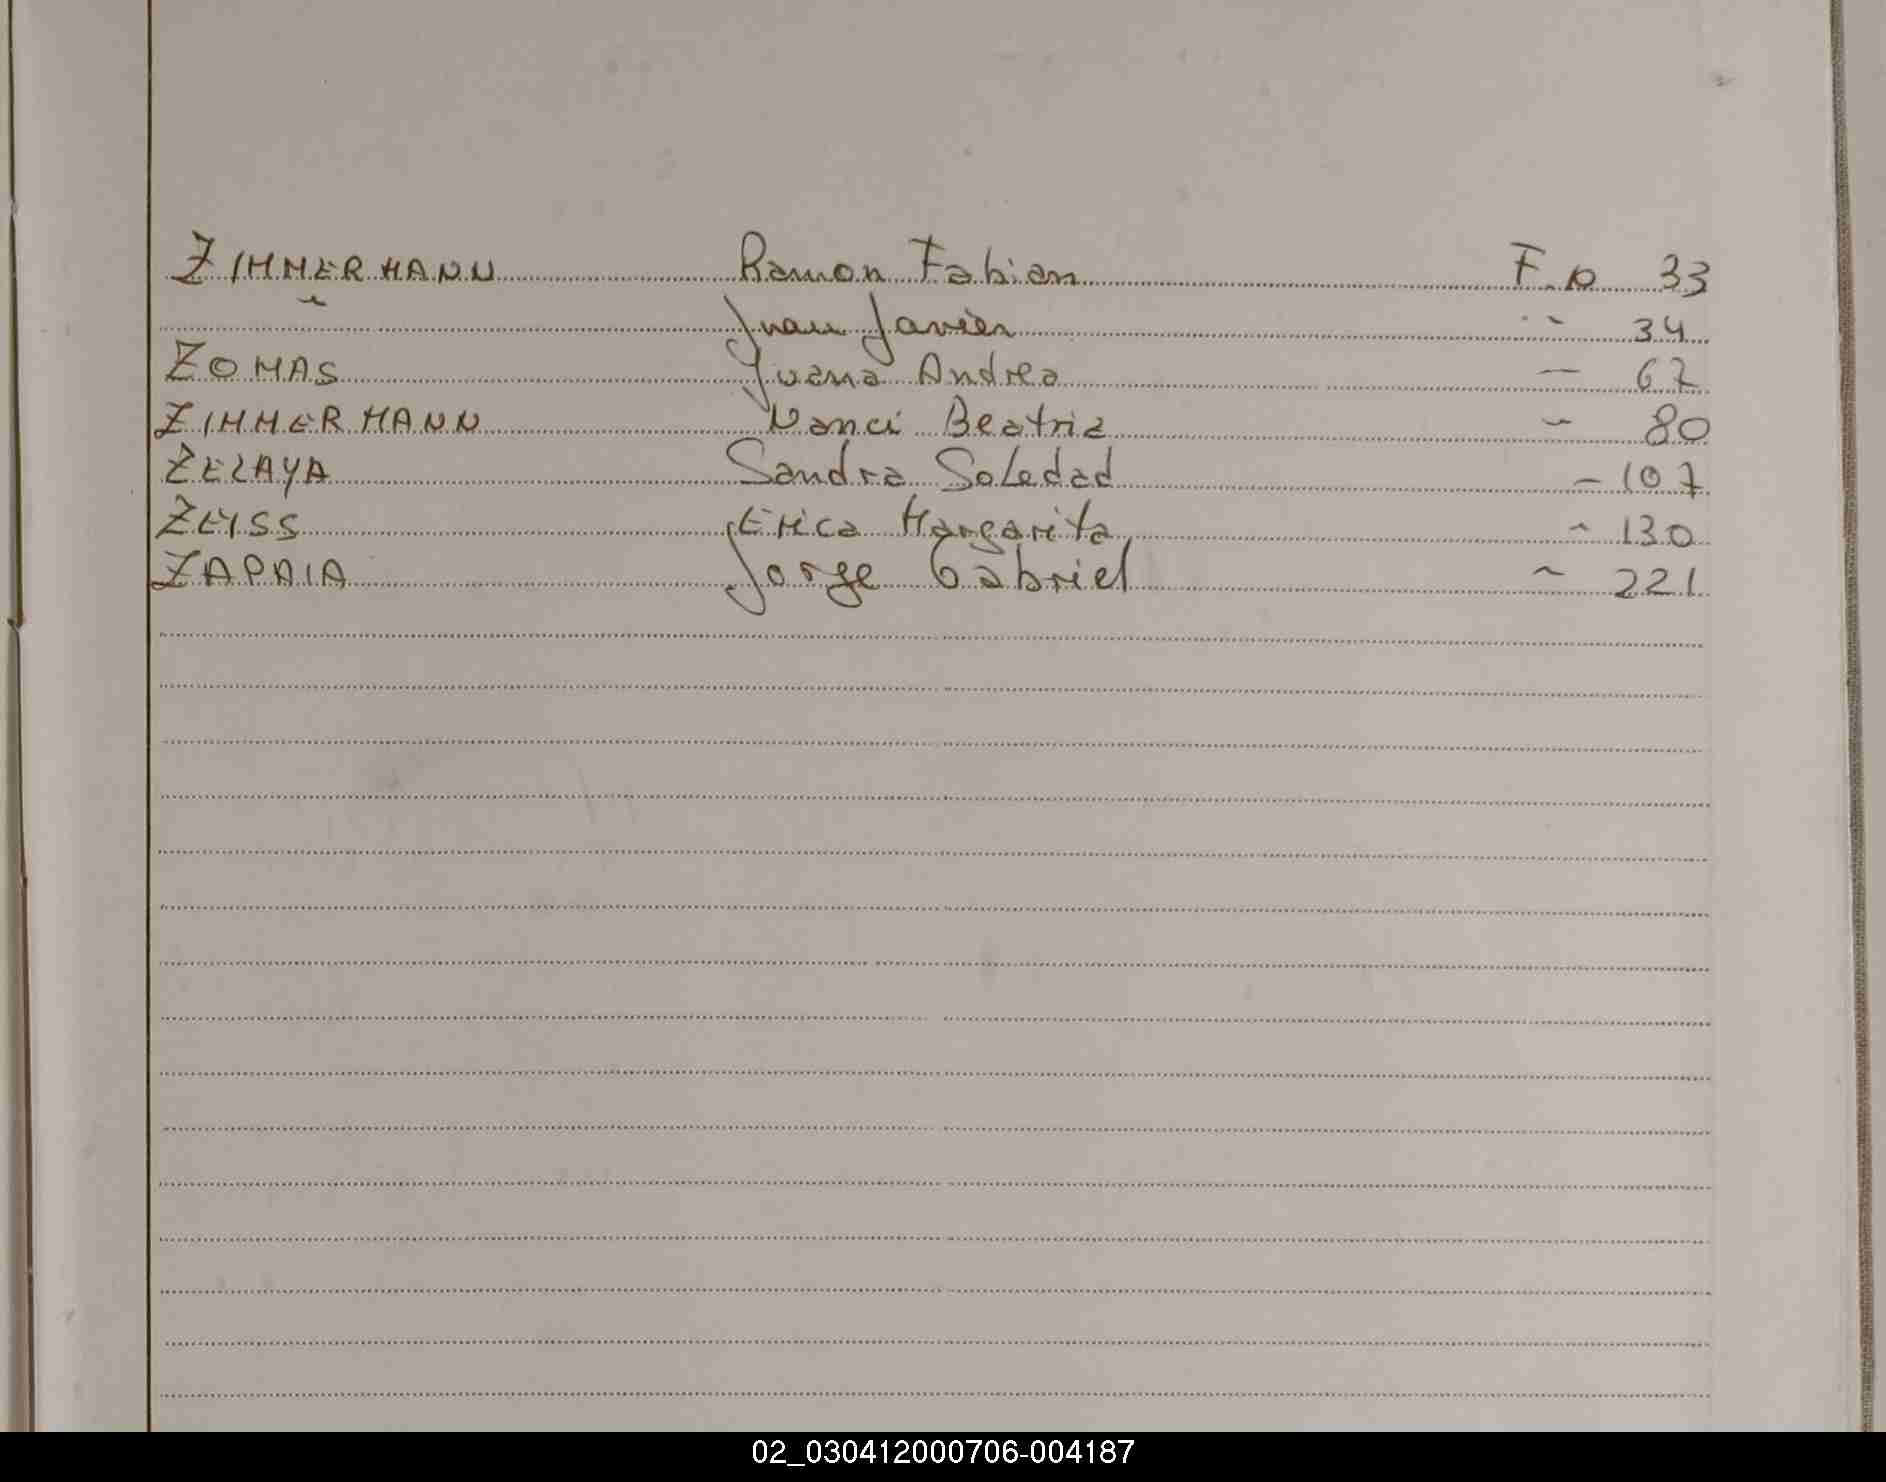 ZIMMERMANN Ramon Fabian Fo 33
" Juan Javier " 34
ZOMAS Juana Andrea — 67
ZIMMERMANN Nanci Beatriz - 80
ZELAYA Sandra Soledad - 107
ZEISS Erica Margarita - 130
ZAPAIA Jorge Gabriel ~ 221
02_030412000706-004187